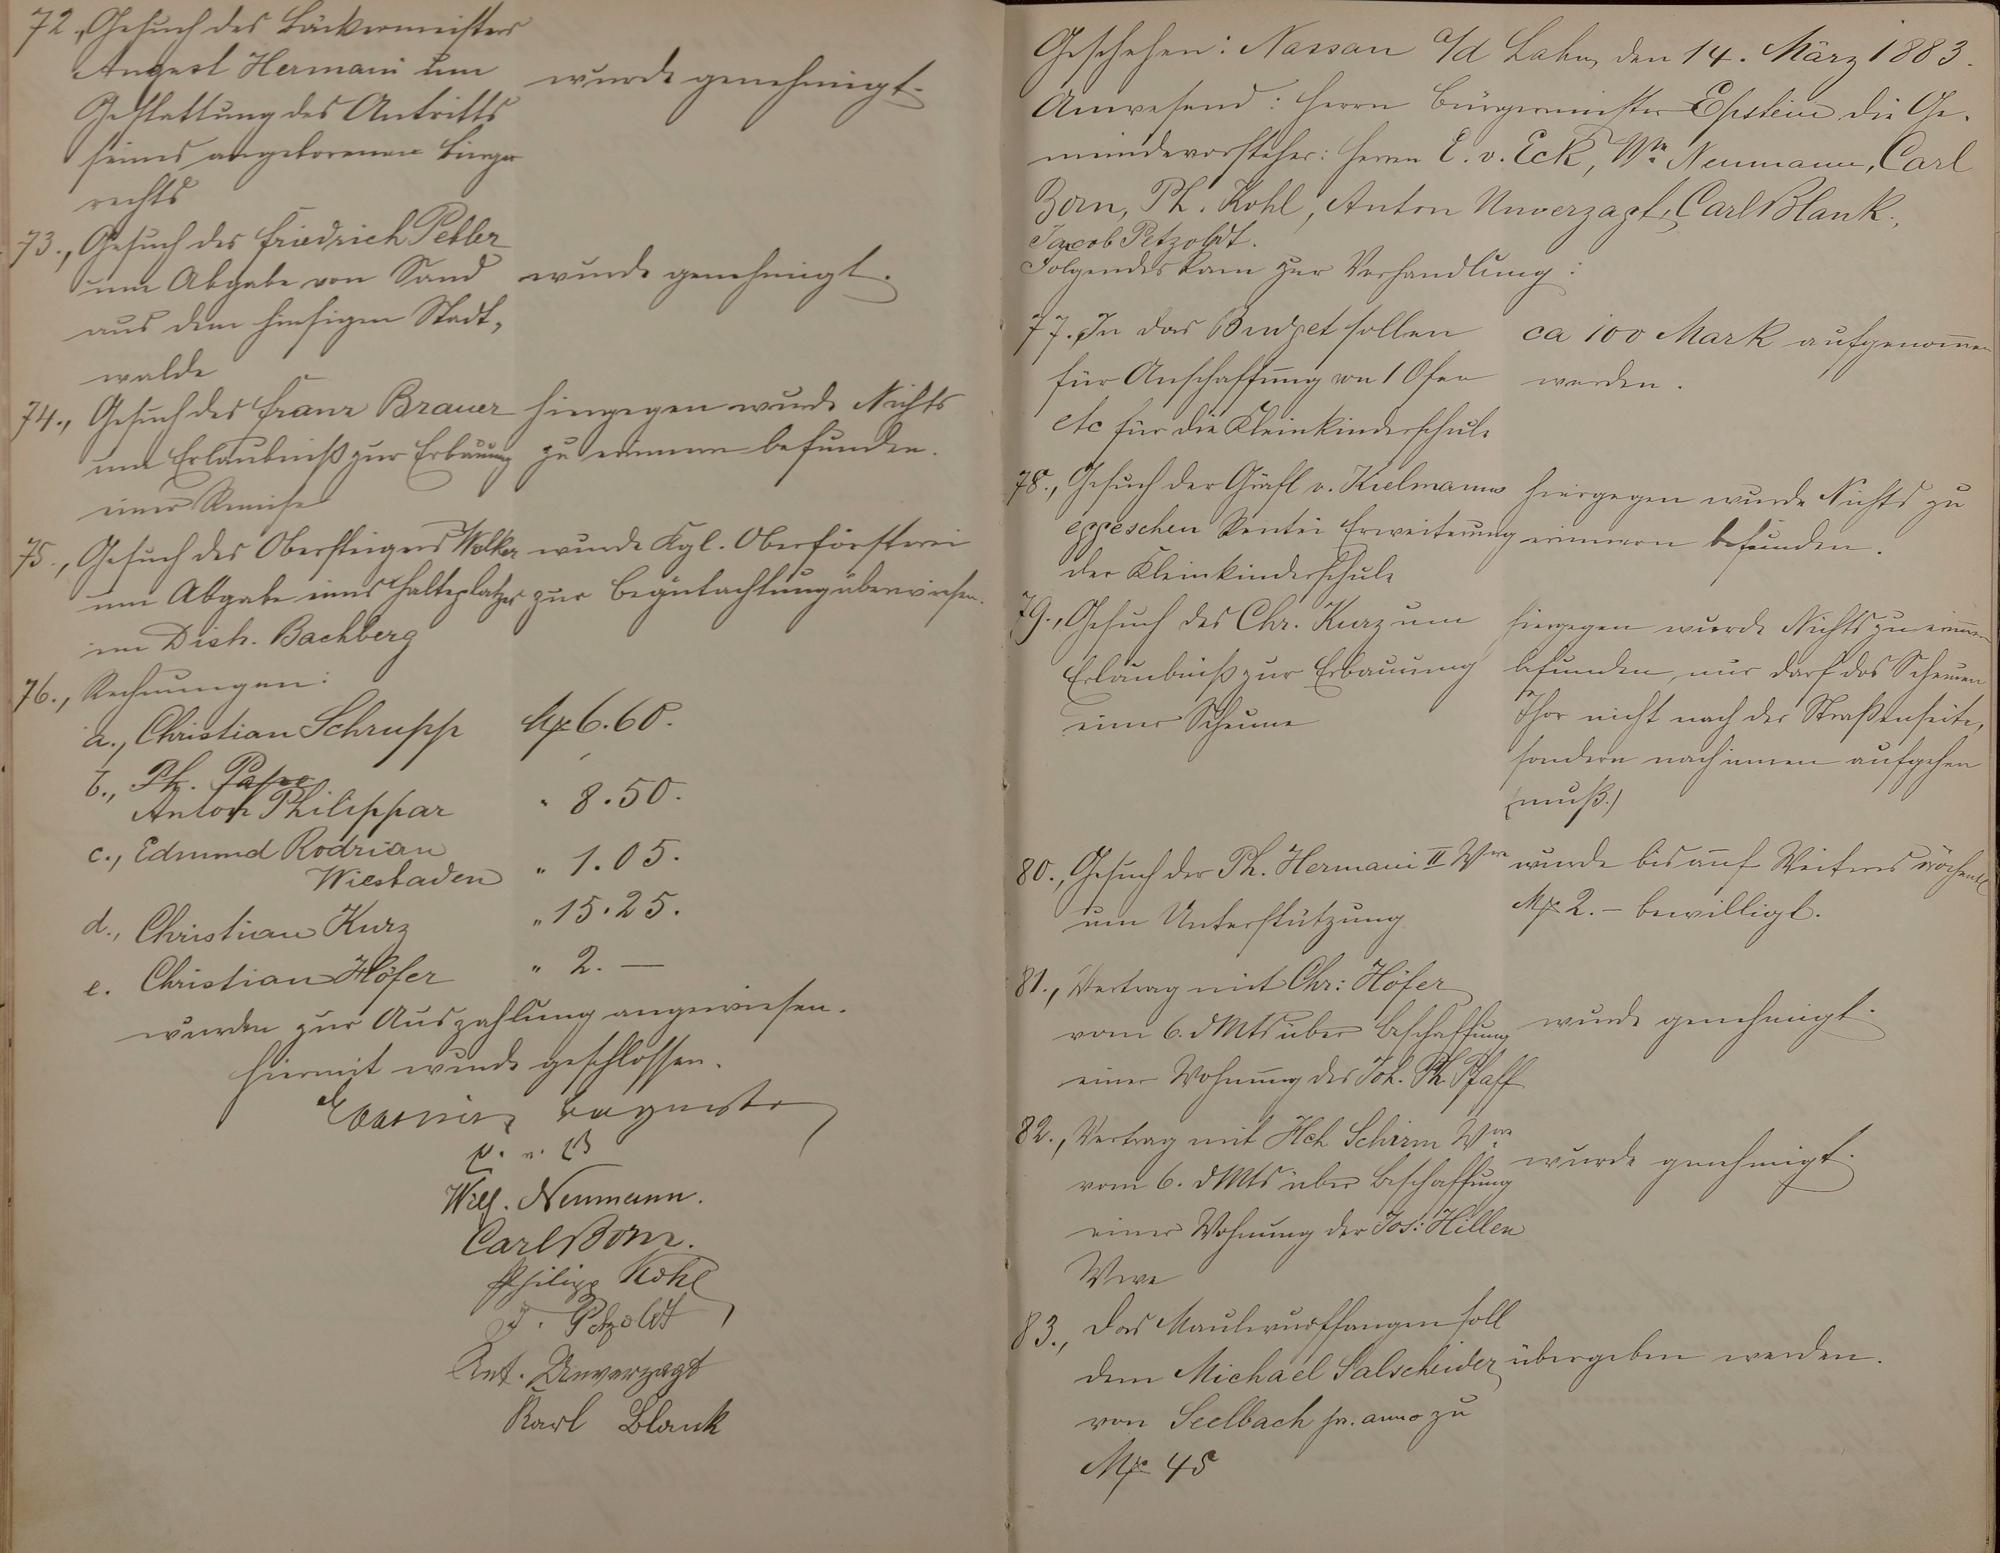 72., Gesuch des Bäckermeisters
August Hermani um
Gestattung des Antritts
seines angeborenen Bürger
rechts
wurde genehmigt.
73., Gesuch des Friedrich Pebler
um Abgabe von Sand
aus dem hiesigen Stadt-
walde
wurde genehmigt.
74., Gesuch des Franz Brauer
um Erlaubniß zur Erbauung
einer Remise
hiergegen wurde Nichts
zu erinnern befunden.
75., Gesuch des Obersteigers Wolker
um Abgabe eines Halteplatzes
im Distr. Bachberg
wurde Kgl. Oberförsterei
zur Begutachtung überwiesen.
76., Rechnungen:
a., Christian Schrupp Mk 6.60.
b., Ph.
Anton Philippar " 8.50.
c., Edmund Rodrian
Wiesbaden " 1.05.
d., Christian Kurz " 15.25.
e. Christian Höfer " 2. —
wurden zur Auszahlung angewiesen.
Hiermit wurde geschlossen.
E. v. Eck
Wilh. Neumann.
Carl Born.
Philipp Kohl
J. Petzoldt
Ant. Unverzagt
Karl Blank
Geschehen: Nassau a/d Lahn, den 14. März 1883.
Anwesend: Herrn Bürgermeister Epstein die Ge-
meindevorsteher: Herrn E. v. Eck, Wm Neumann, Carl
Born, Ph. Kohl, Anton Unverzagt, Carl Blank.,
Jacob Petzoldt.
Folgendes kam zur Verhandlung:
77. In das Budget sollen
für Anschaffung von 1 Ofen
etc für die Kleinkinderschule
ca 100 Mark aufgenommen
werden.
78., Gesuch der Gräfl v. Kielmanns
eggeschen Rentei Erweiterung
der Kleinkinderschule
hiergegen wurde Nichts zu
erinnern befunden.
79., Gesuch des Chr. Kurz um
Erlaubniß zur Erbauung
einer Scheune
hiergegen wurde Nichts zu erinnern
befunden, nur darf das Scheunen
Thor nicht nach der Straßenseite,
sondern nach innen aufgehen
(muß.)
80., Gesuch der Ph. Hermani II Wwe
um Unterstützung
wurde bis auf Weiteres wöchentl
Mk 2. – bewilligt.
81., Vertrag mit Chr: Höfer
vom 6. d Mts über Beschaffung
einer Wohnung des Joh. Ph. Pfaff
wurde genehmigt.
82., Vertrag mit Hch Schirm Wwe
vom 6. d Mts über Beschaffung
einer Wohnung der Jos: Hillen
Wwe
wurde genehmigt.
83., Das Maulwurffangen soll
dem Michael Salscheider
von Seelbach pr. anno zu
Mk 45
übergeben werden.